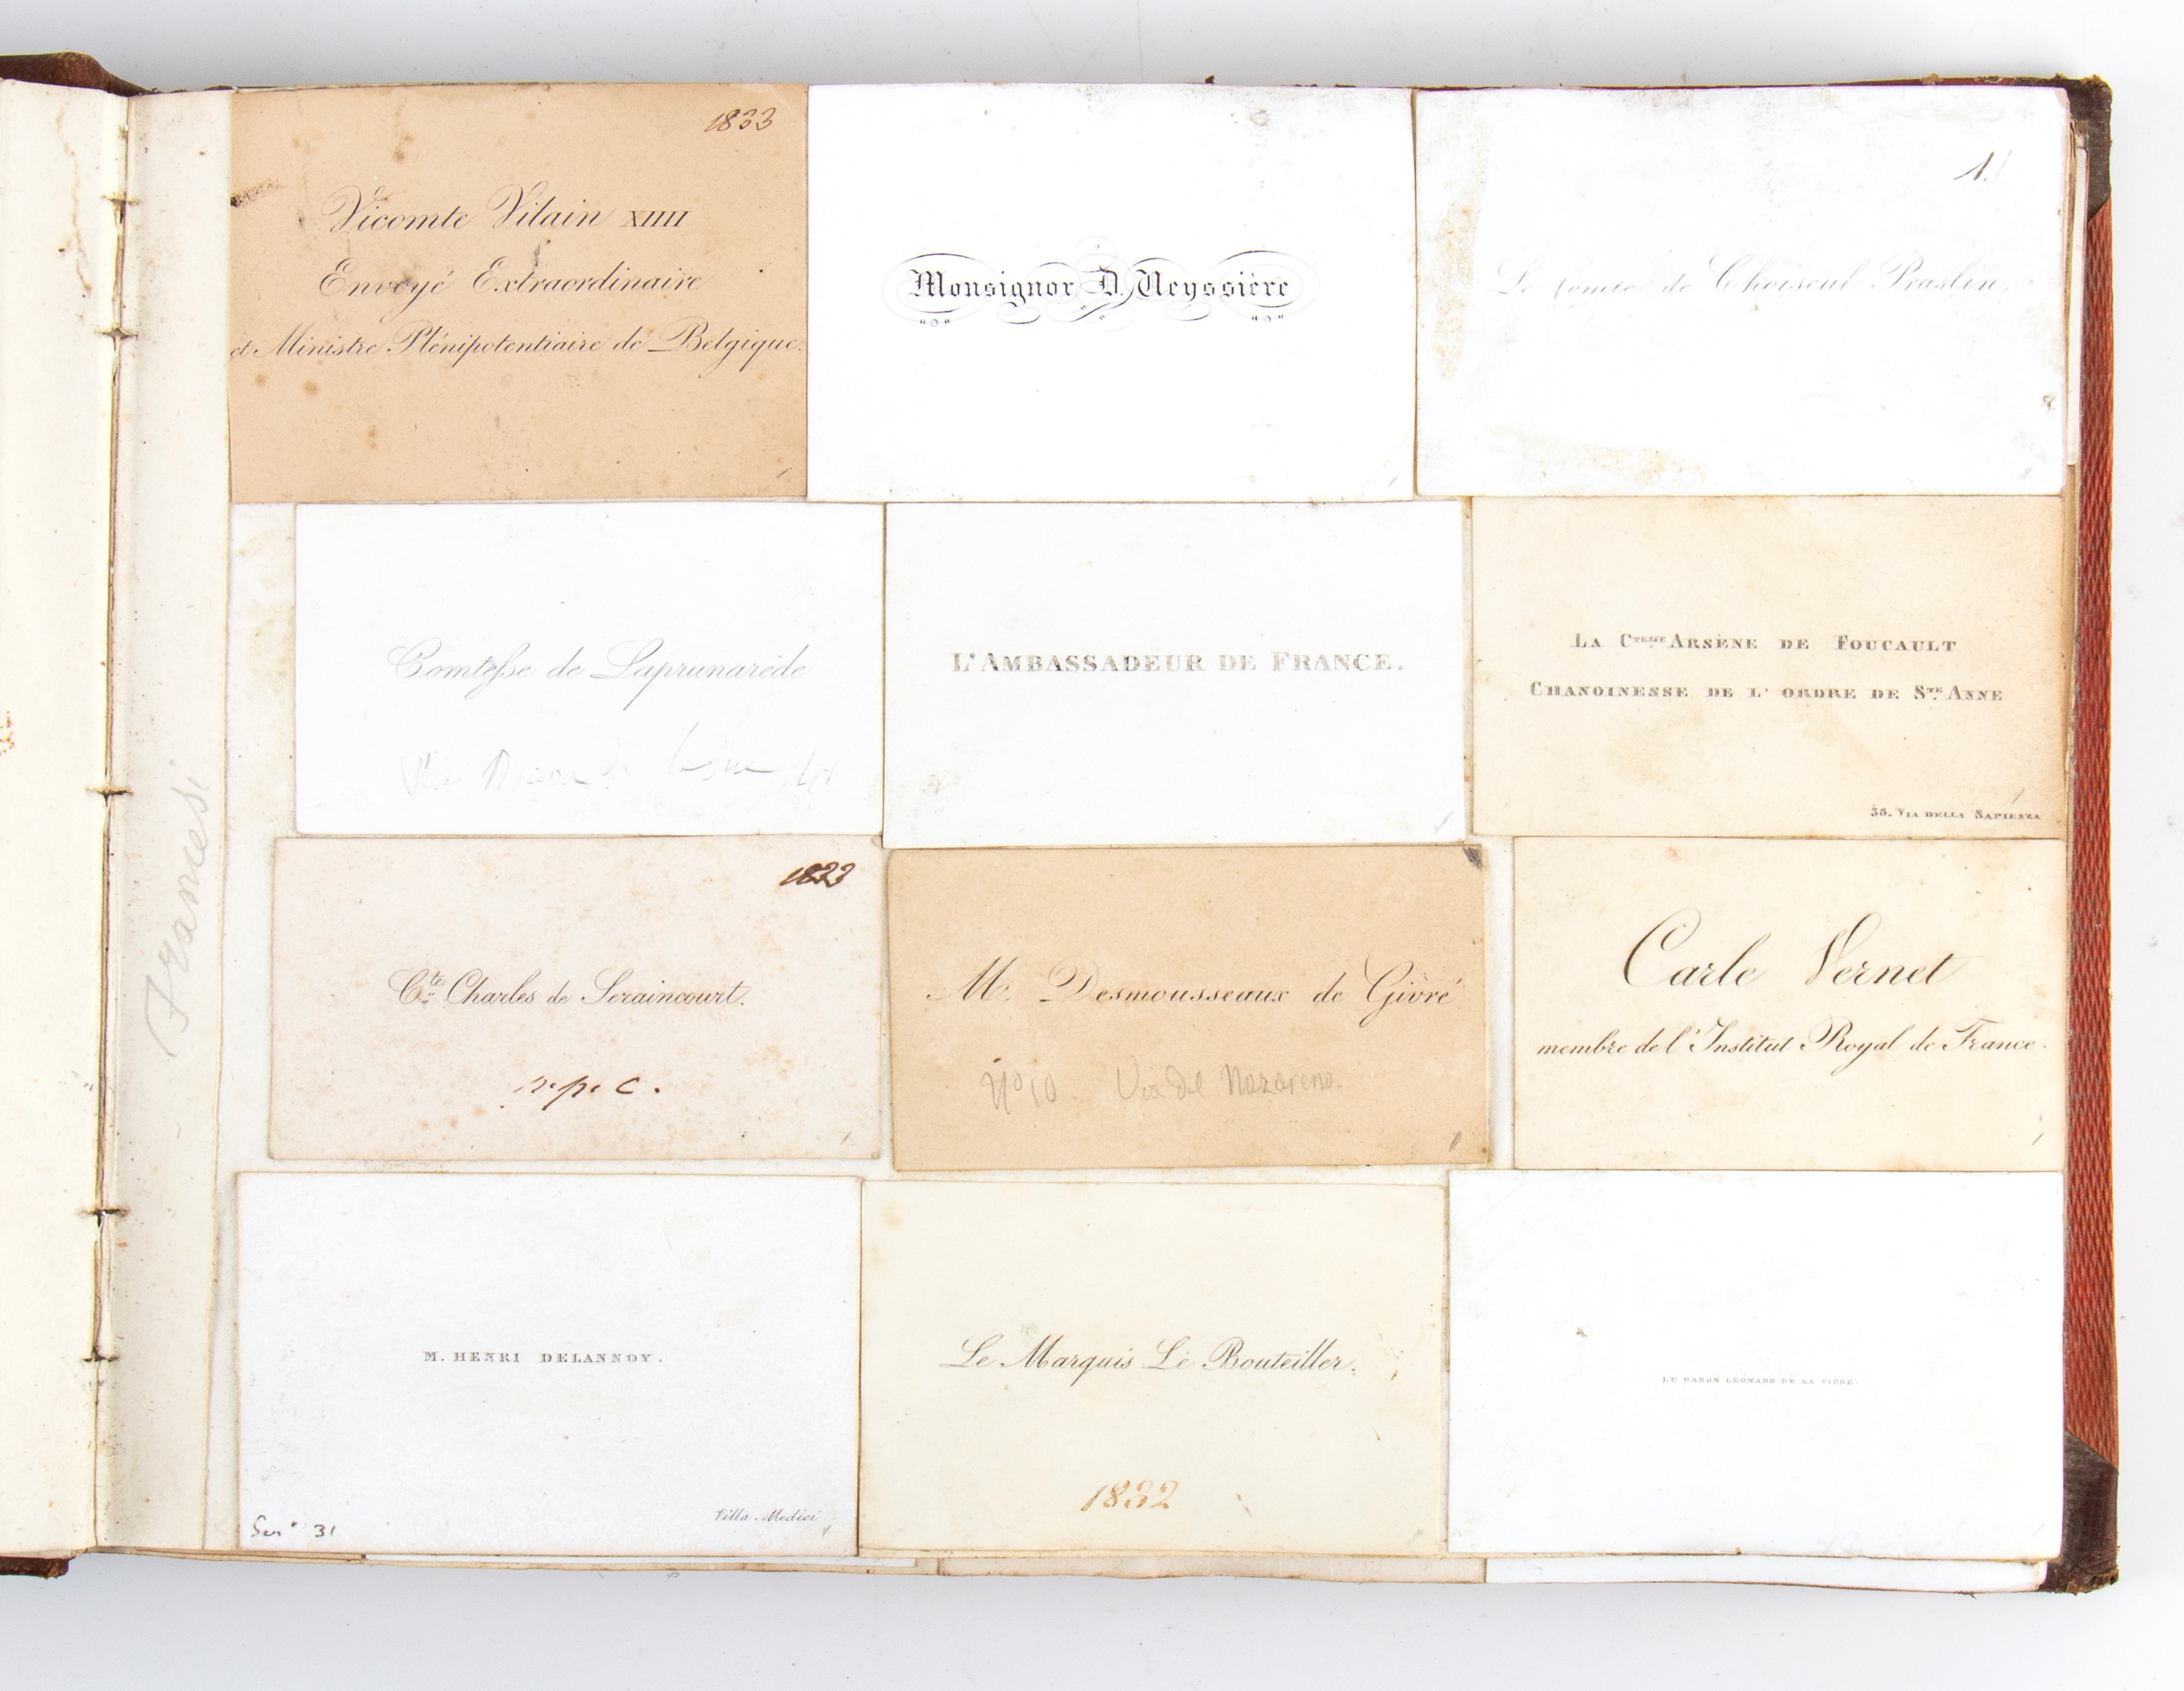 Francesi
1833
Vicomte Vilain XIIII
Envoyé Extraordinaire
et Ministre Plénipotentiaire de Belgique.
Monsignor D. Veyssière
1.
Le Comte de Choiseul Praslin.
Comtesse de Laprunarède
L'AMBASSADEUR DE FRANCE.
LA Cᵀᴱˢˢᴱ ARSÈNE DE FOUCAULT
CHANOINESSE DE L' ORDRE DE Sᵀᴱ ANNE
38. VIA DELLA SAPIENZA
1833
Cᵗᵉ Charles de Seraincourt.
p. p. c.
M. Desmousseaux de Givré
Nº 10. Via del Nazareno.
Carle Vernet
membre de l'Institut Royal de France.
M. HENRI DELANNOY.
Villa Medici
31
Le Marquis Le Bouteiller.
1832
LE BARON LÉONARD DE LA